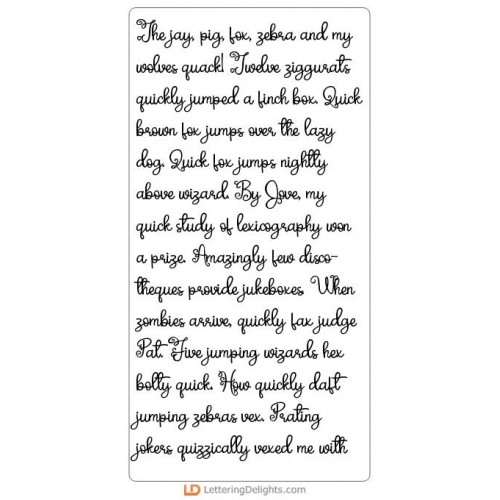 The jay, pig, fox, zebra and my
wolves quack! Twelve ziggurats
quickly jumped a finch box. Quick
brown fox jumps over the lazy
dog. Quick fox jumps nightly
above wizard. By Jove, my
quick study of lexicography won
a prize. Amazingly few disco-
theques provide jukeboxes. When
zombies arrive, quickly fax judge
Pat. Five jumping wizards hex
bolty quick. How quickly daft
jumping zebras vex. Prating
jokers quizzically vexed me with
LD LetteringDelights.com